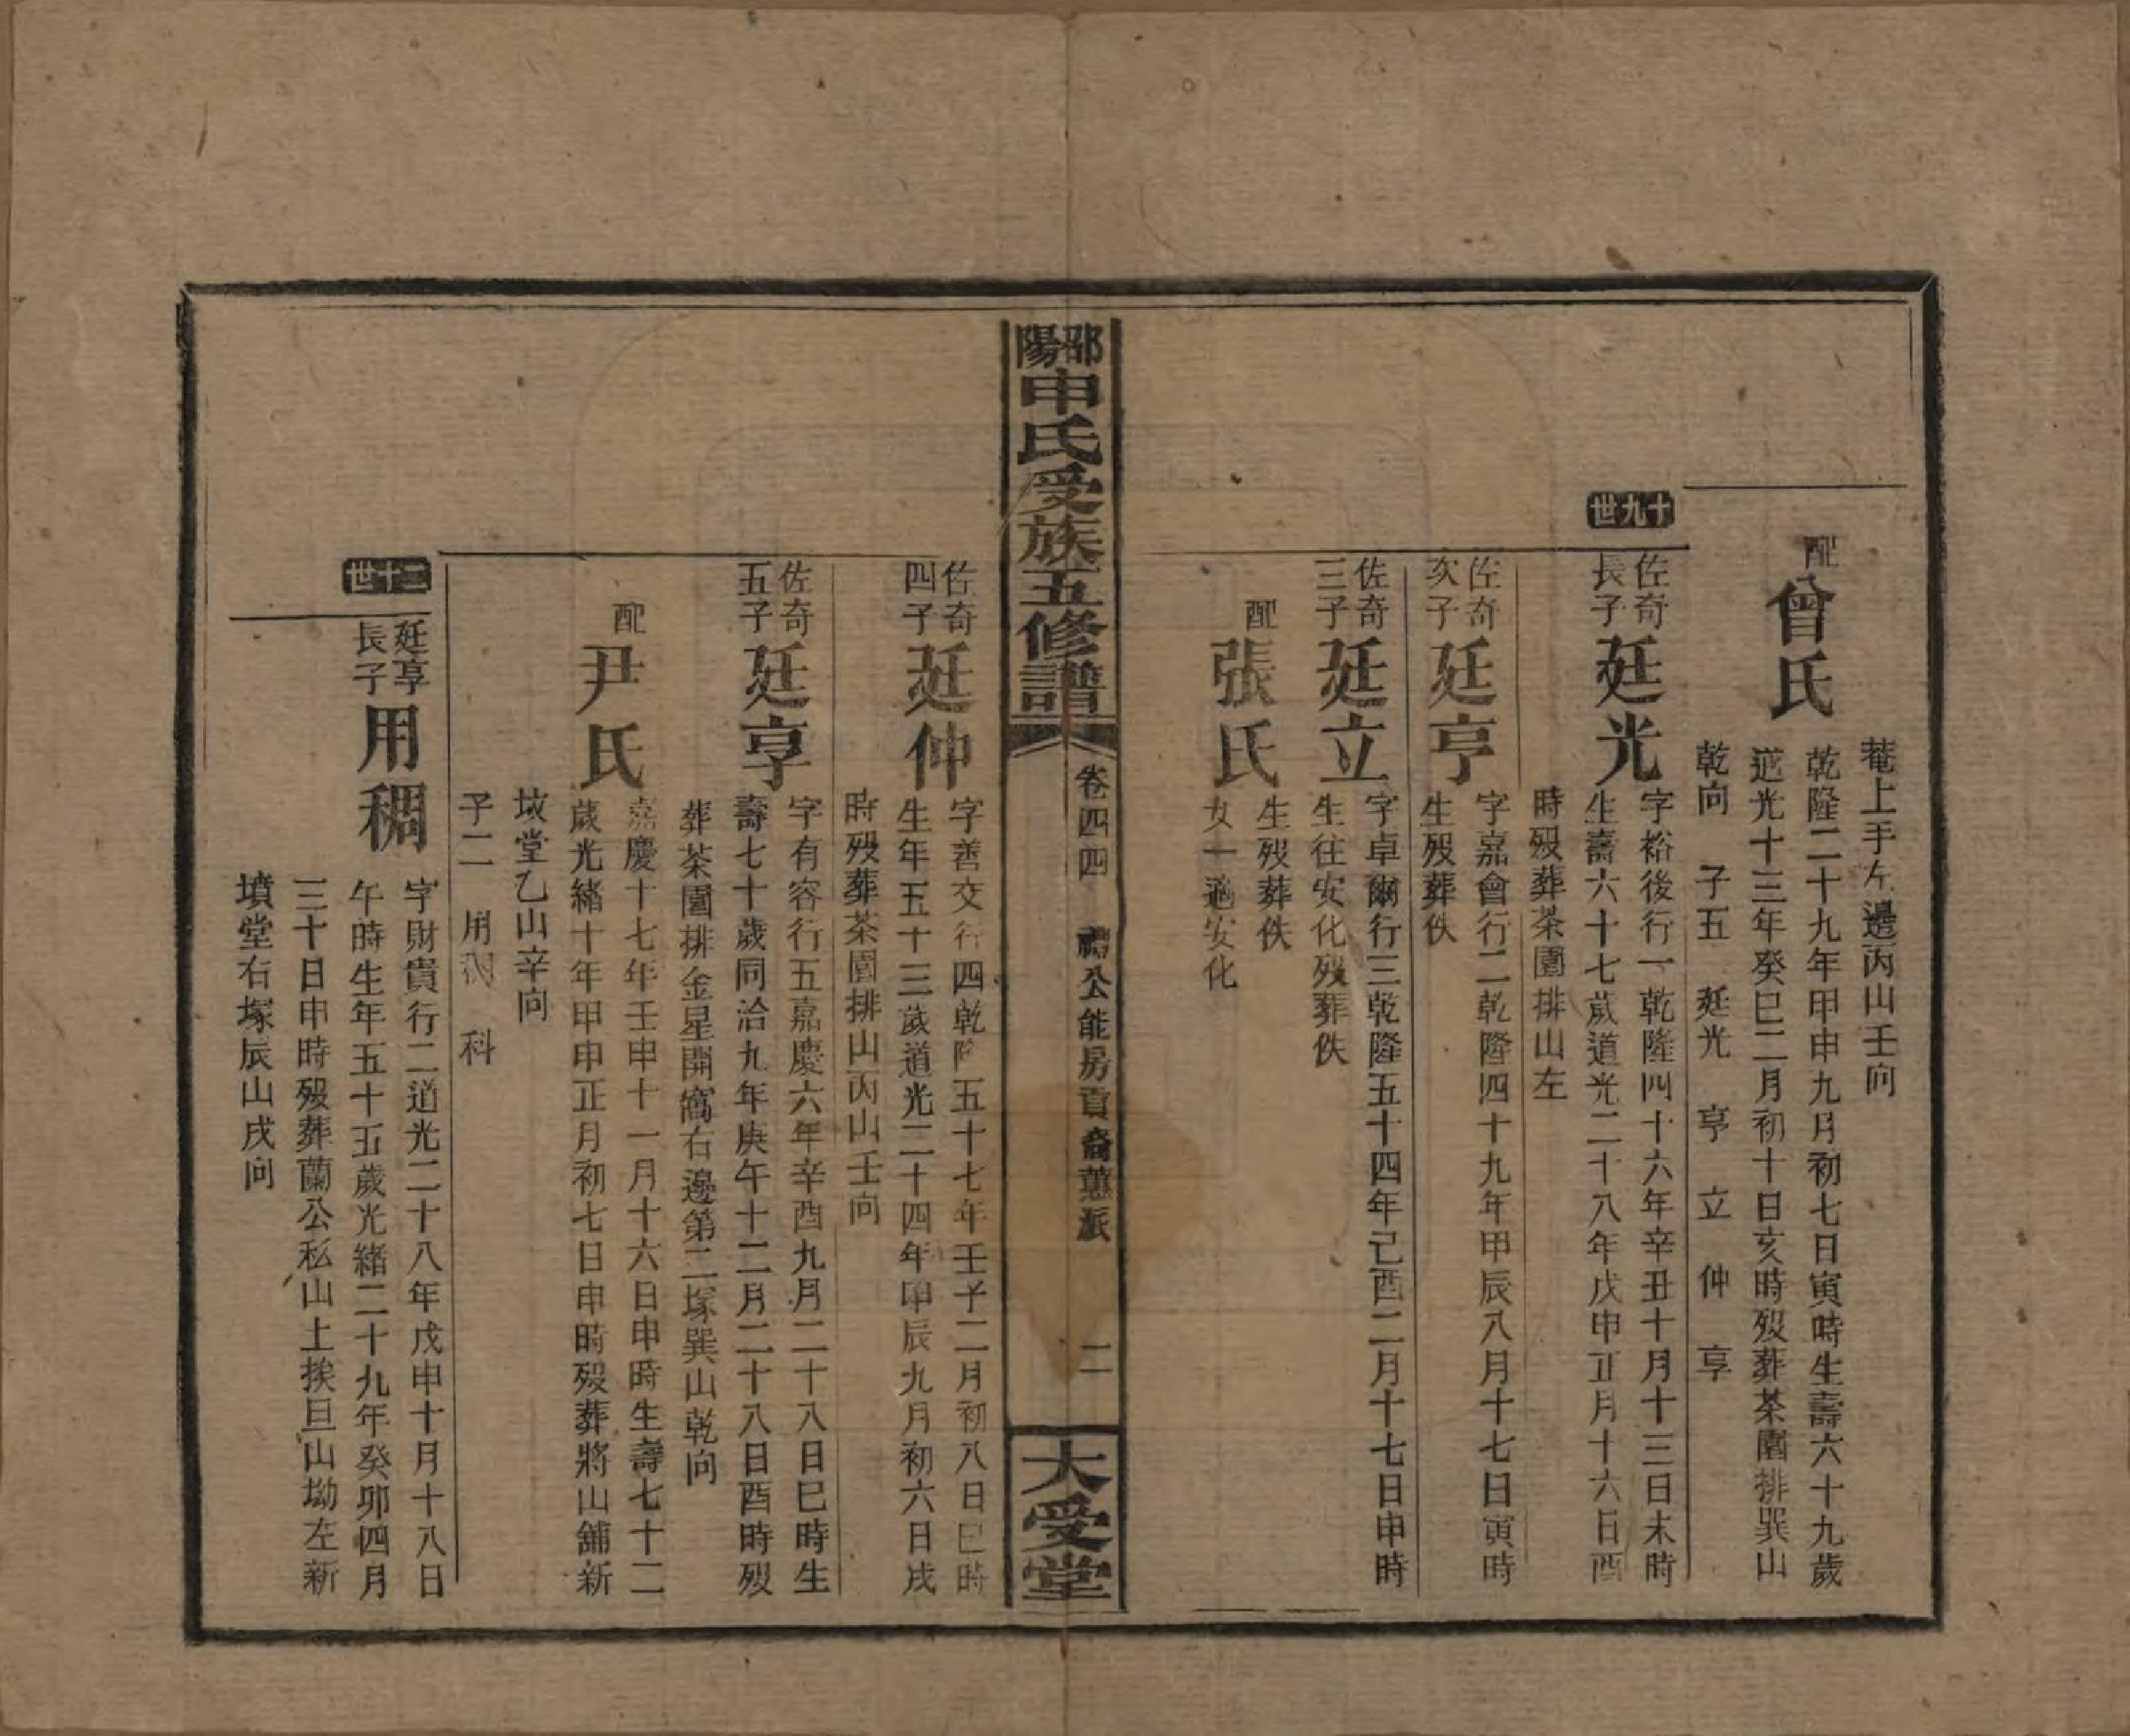 菴上手左邊丙山壬向
配
曾氏
乾隆二十九年甲申九月初七日寅時生壽六十九歲
道光十三年癸巳二月初十日亥時歿葬茶園排巽山
乾向 子五 廷光 亨 立 仲 享
十九世
佐奇長子
廷光
字裕後行一乾隆四十六年辛丑十月十三日未時
生壽六十七歲道光二十八年戊申正月十六日酉
時歿葬茶園排山左
佐奇次子
廷亨
字嘉會行二乾隆四十九年甲辰八月十七日寅時
生歿葬佚
佐奇三子
廷立
字卓爾行三乾隆五十四年己酉二月十七日申時
生往安化歿葬佚
配
張氏
生歿葬佚
女一適安化
邵陽申氏受族五修譜
卷四四
禧公能房貢裔蕙派
二
大受堂
佐奇四子
廷仲
字善交行四乾隆五十七年壬子二月初八日巳時
生年五十三歲道光二十四年甲辰九月初六日戌
時歿葬茶園排山丙山壬向
佐奇五子
廷享
字有容行五嘉慶六年辛酉九月二十八日巳時生
壽七十歲同治九年庚午十二月二十八日酉時歿
葬茶園排金星開窩右邊第二塚巽山乾向
配
尹氏
嘉慶十七年壬申十一月十六日申時生壽七十二
歲光緒十年甲申正月初七日申時歿葬將山舖新
墳堂乙山辛向
子二 用稠 科
二十世
廷享長子
用稠
字財貴行二道光二十八年戊申十月十八日
午時生年五十五歲光緒二十九年癸卯四月
三十日申時歿葬蘭公私山上挨旦山坳左新
墳堂右塚辰山戌向